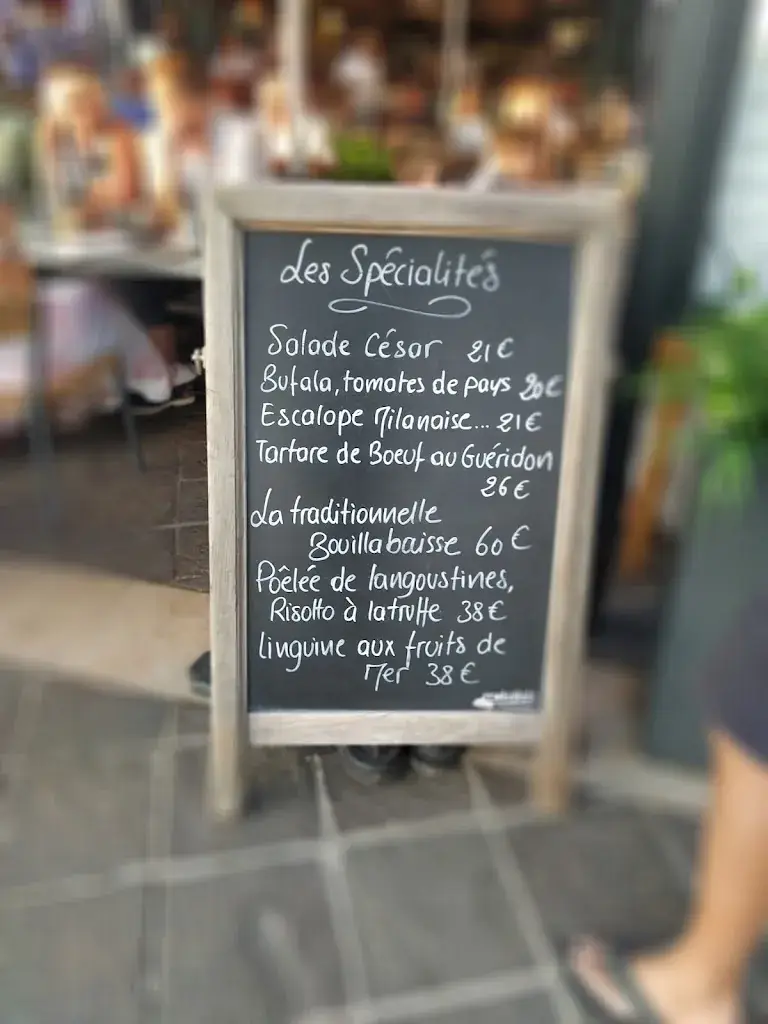 Les Spécialités
Salade César 21€
Bufala, tomates de pays 20€
Escalope Milanaise... 21€
Tartare de Boeuf au Guéridon
26€
La traditionnelle
Bouillabaisse 60€
Poêlée de langoustines,
Risotto à la truffe 38€
linguine aux fruits de
Mer 38€